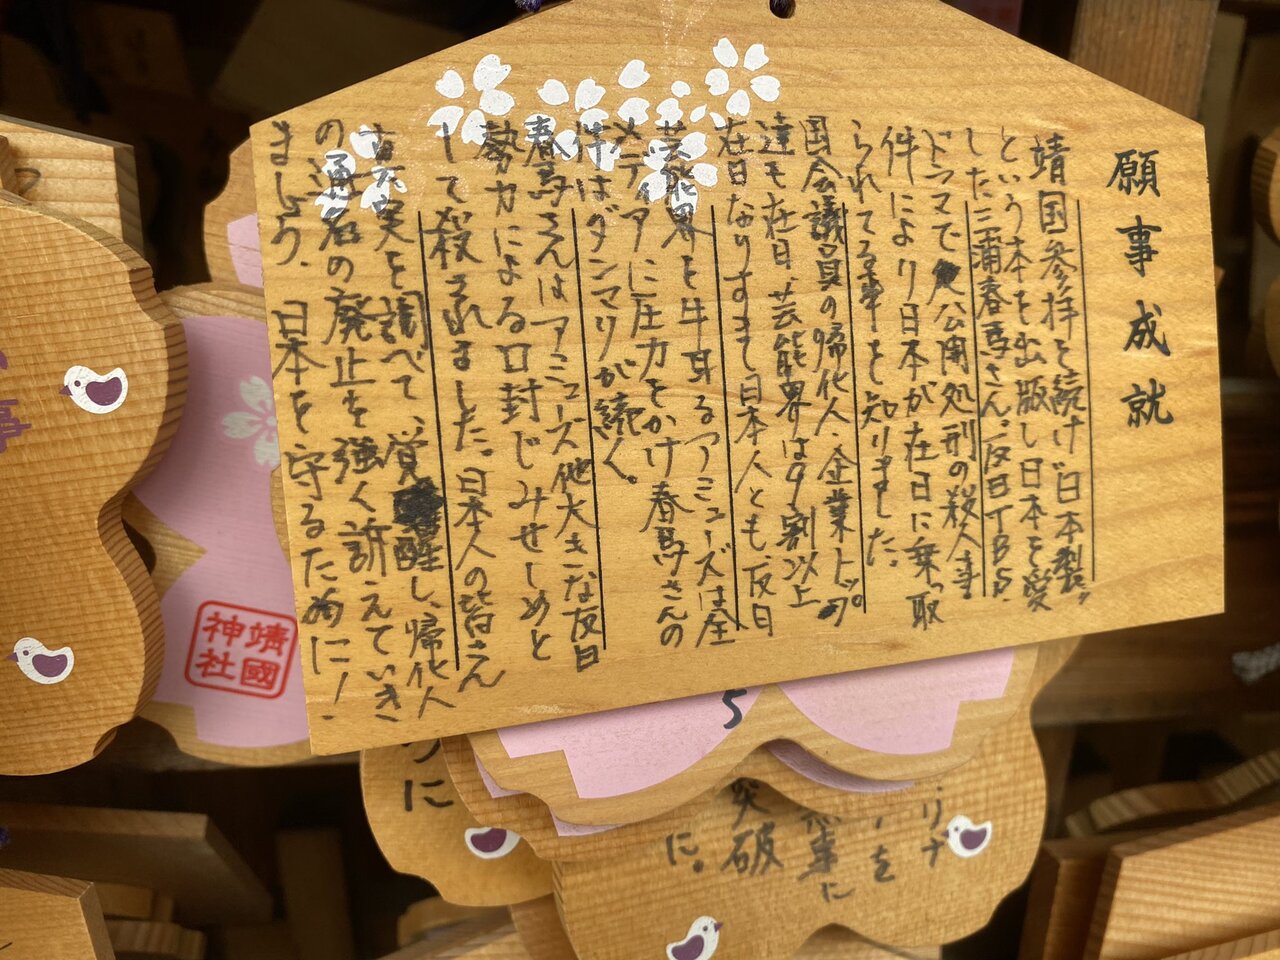 願事成就
靖国参拝を続け『日本製』
という本を出版し日本を愛
した三浦春馬さん。反日TBS.
ドラマで公開処刑の殺人事
件により日本が在日に乗っ取
られてる事を知りました。
国会議員の帰化人、企業トップ
達も在日、芸能界は9割以上
在日なりすまし日本人とも、反日
芸能界を牛耳るアミューズは全
メディアに圧力をかけ春馬さんの
件はダンマリが続く。
春馬さんはアミューズ他大きな反日
勢力による口封じみせしめと
して殺されました。日本人の皆さん
真実を調べて、覚醒し、帰化人
の通名の廃止を強く訴えていき
ましょう。日本を守るために！
靖國
神社
5
リナ
を
事に
突破
に。
うに
事